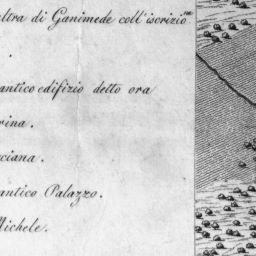 ltra di Ganimede coll'iscrizio.ne
.
antico edifizio detto ora
rina.
ciana.
antico Palazzo.
Michele.